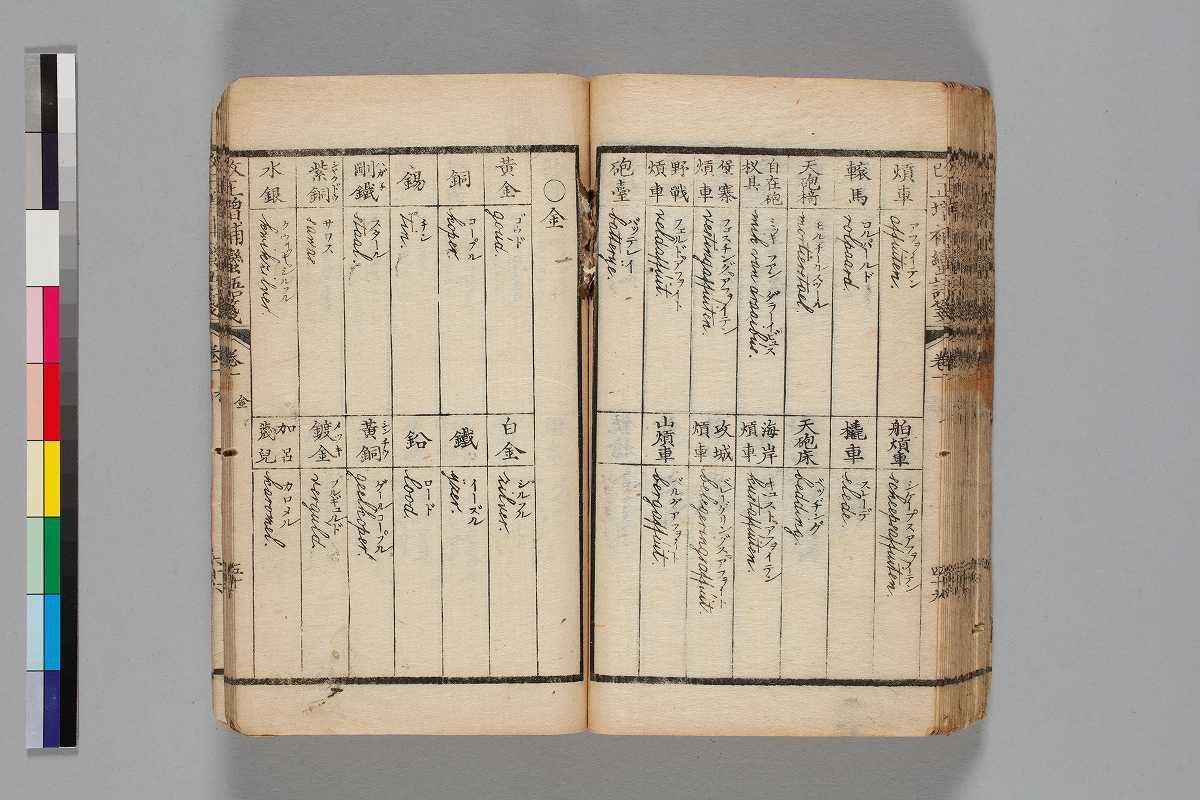 煩車
アフフイテン
affuiten.
轅馬
ロルパールド
rolpaard.
天砲椅
モルチールストール
mortierstoel.
自在砲
杈具
煩車
フェスチングアフフイテン
vestingaffuiten.
野戰
煩車
フェルドアフフイト
veldaffuit.
砲臺
バッテレイ
batterye.
舶煩車
シケープスアフフイテン
scheepsaffuiten.
橇車
スレーデ
slede.
天砲床
ベッヂング
bedding.
海岸
煩車
キュストアフフイテン
kustaffuiten.
攻城
煩車
ベレーゲリングスアフフイト
belegeringsaffuit.
山煩車
ベルグアフフイト
bergaffuit.
○金
黃金
ゴウド
goud.
銅
コープル
koper.
錫
チン
tin.
剛鐵
ハガネ
スタール
staal.
紫銅
シヤクドウ
サワス
sawas
水銀
クウイキシルフル
kwikzilver.
白金
シルフル
zilver.
鐵
イーズル
yzer.
鉛
ロード
lood.
黃銅
シンチウ
ゲールコープル
geelkoper.
鍍金
メッキ
フルギュルド
verguld.
加呂
蔑兒
カロメル
karomel.
改正增補蠻語箋
卷一
金